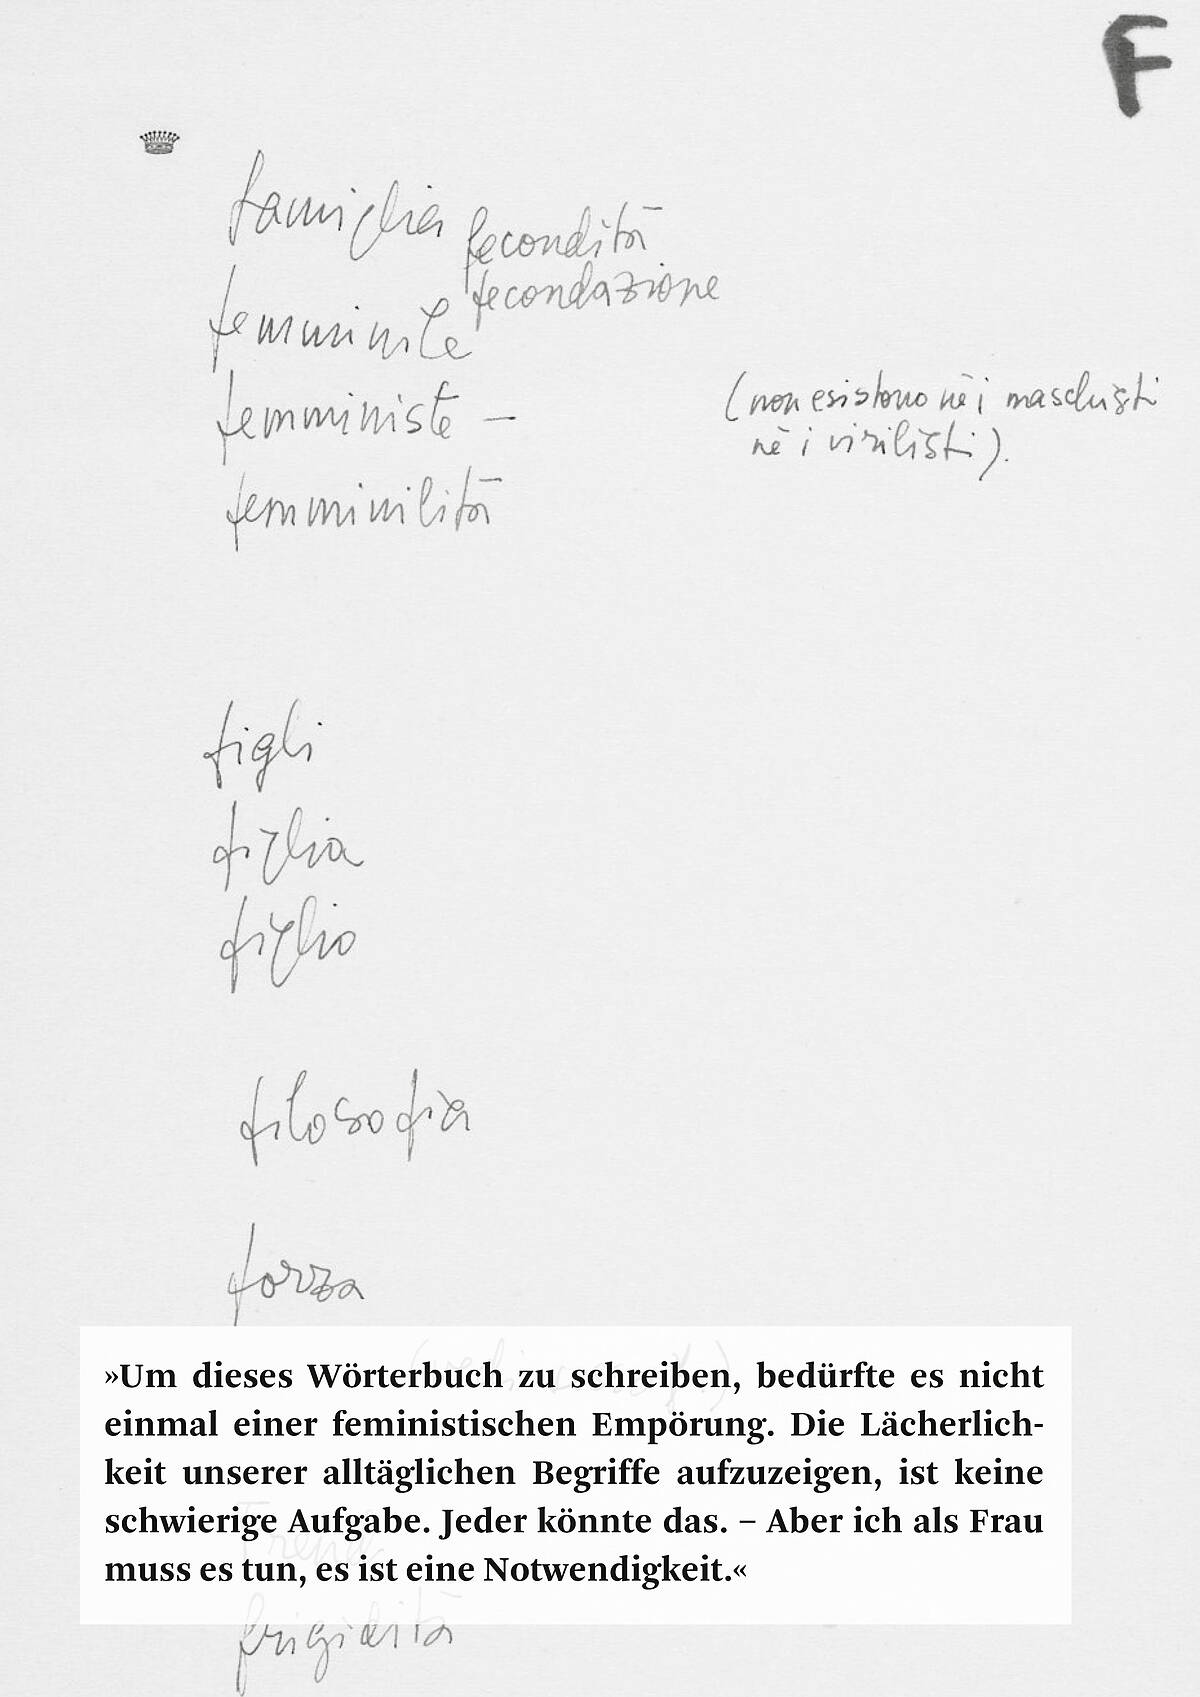 F
famiglia
fecondità
fecondazione
femminile
femministe –
(non esistono nè i maschisti
nè i virilisti).
femminilità
figli
figlia
figlio
filosofia
forza
»Um dieses Wörterbuch zu schreiben, bedürfte es nicht
einmal einer feministischen Empörung. Die Lächerlich-
keit unserer alltäglichen Begriffe aufzuzeigen, ist keine
schwierige Aufgabe. Jeder könnte das. – Aber ich als Frau
muss es tun, es ist eine Notwendigkeit.«
frigidità